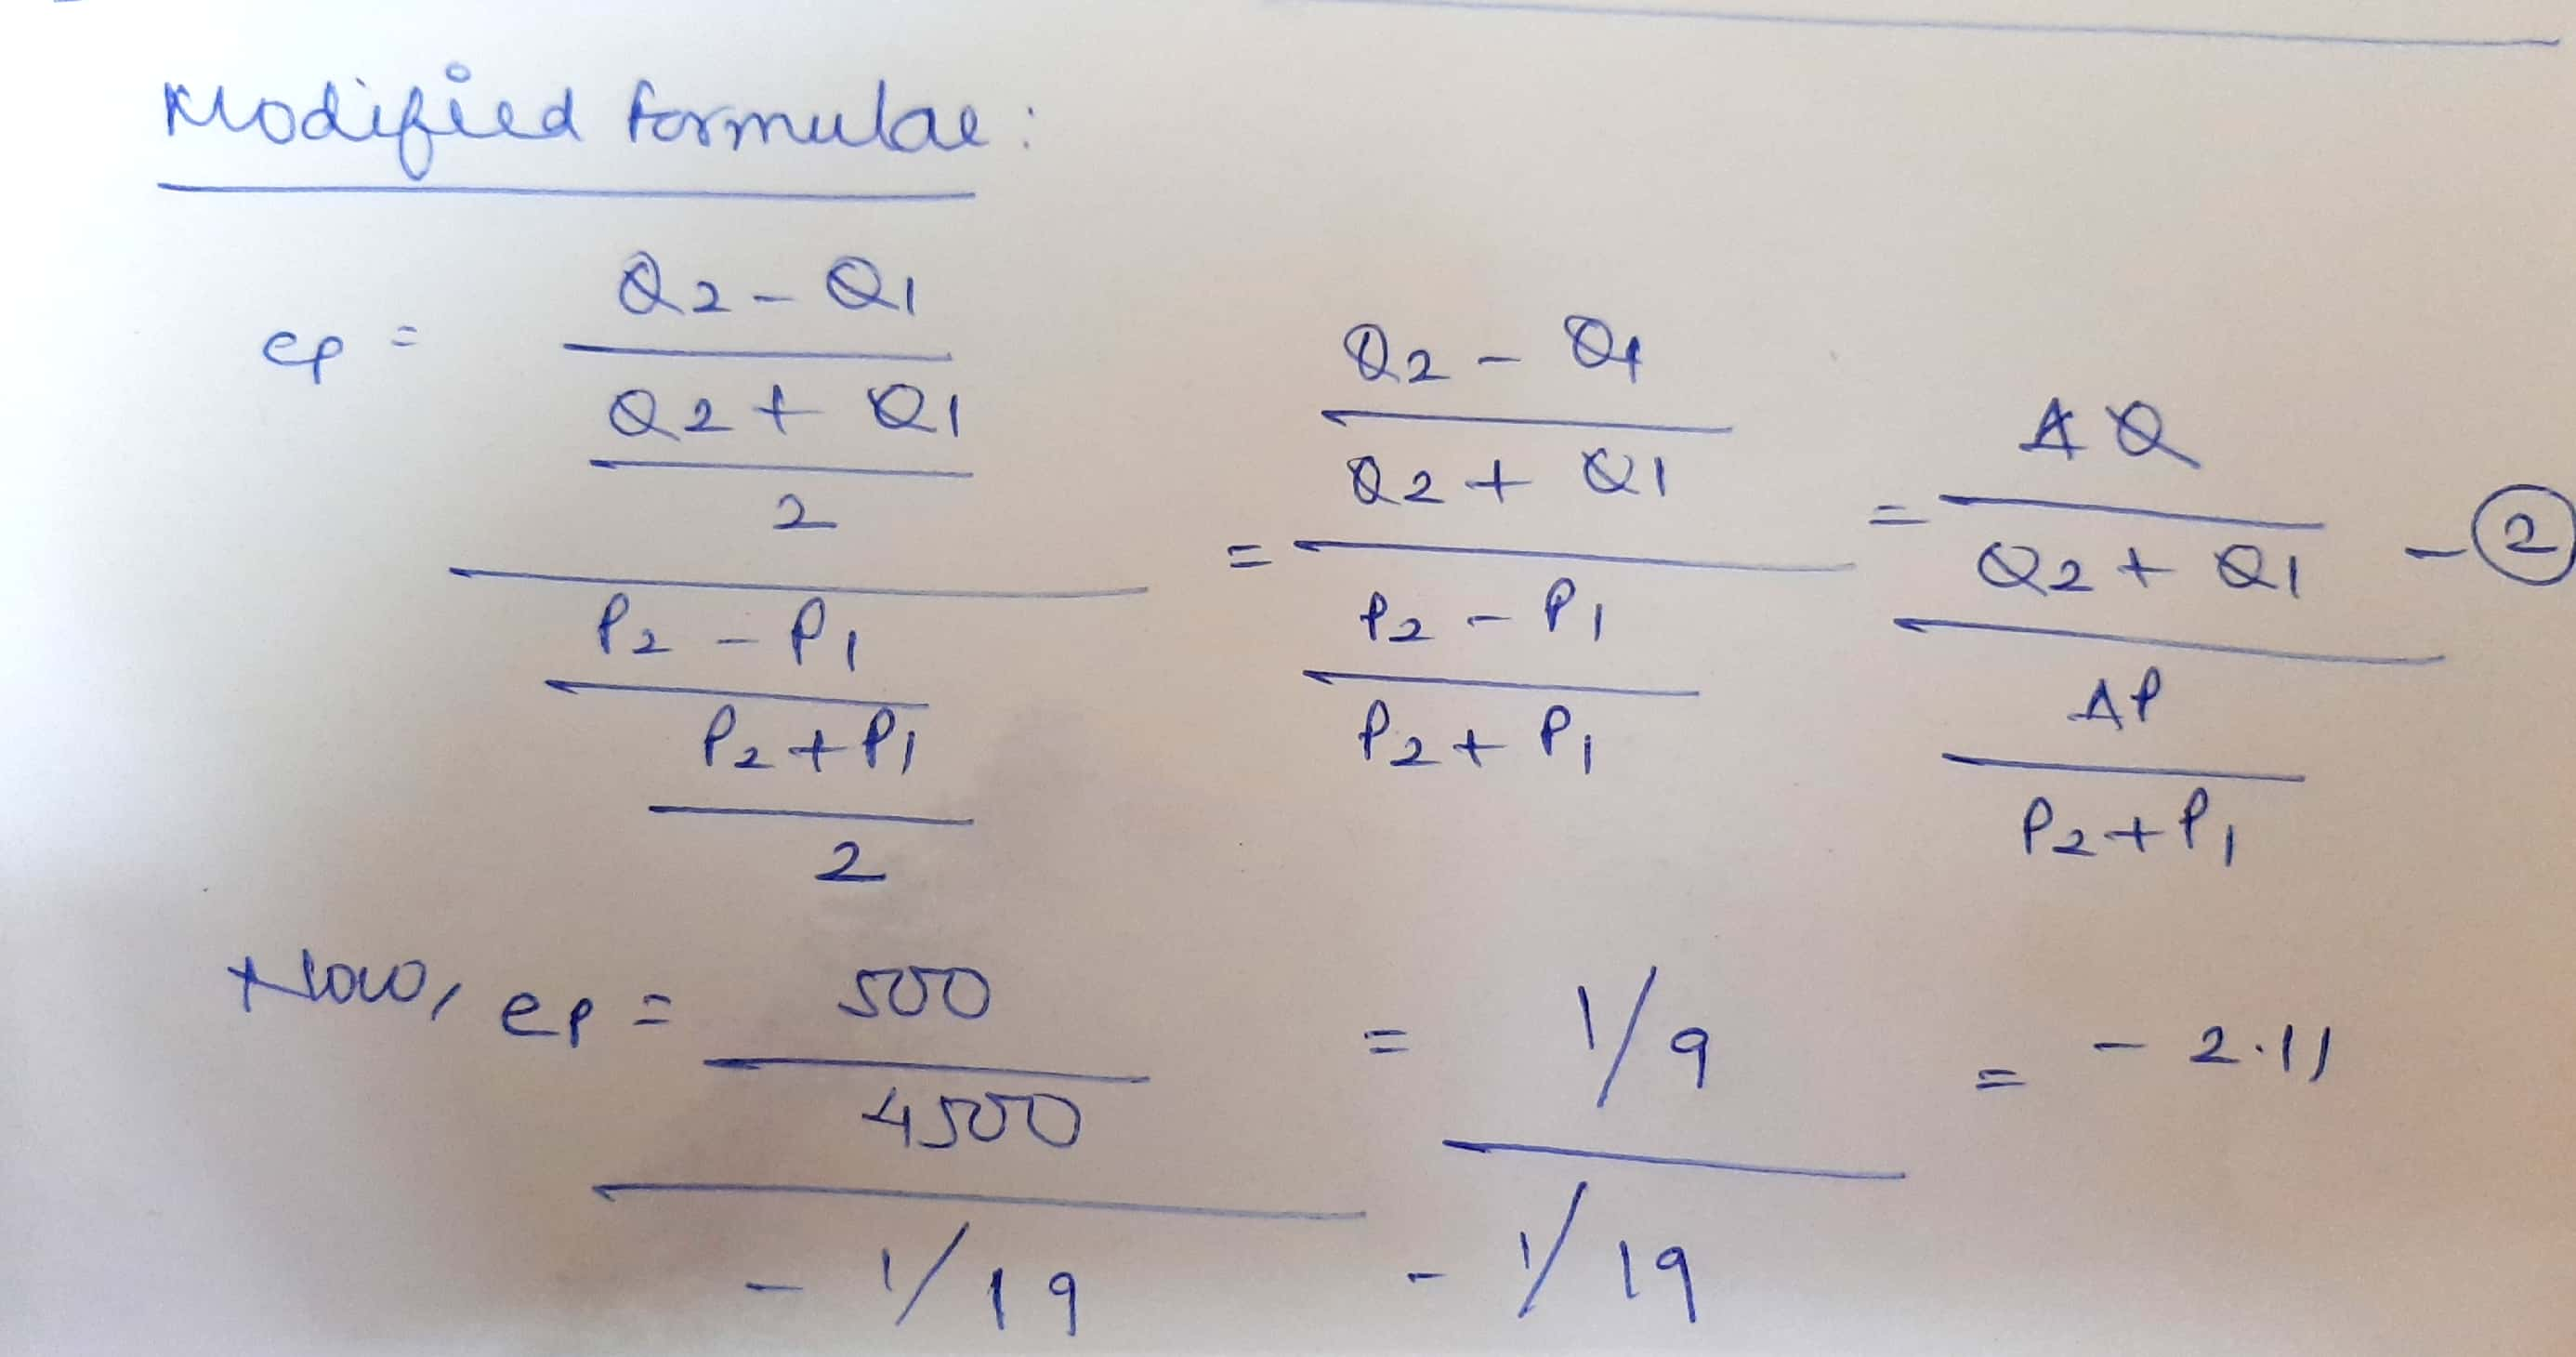 Modified formulae:
ep = Q2 - Q1
Q2 + Q1
2
P2 - P1
P2 + P1
2
= Q2 - Q1
Q2 + Q1
P2 - P1
P2 + P1
= ΔQ
Q2 + Q1
ΔP
P2 + P1
- 2
Now, ep = 500
4500
- 1/19
= 1/9
- 1/19
= - 2.11